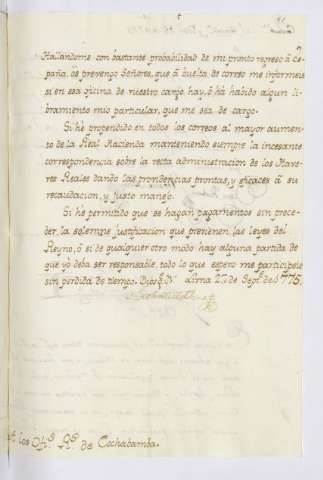 Hallandome con bastante probabilidad de mi pronto regreso á Es-
paña, os prevengo Señores, que á buelta de correo me informeis
si en esa oficina de vuestro cargo hay, ó há habido algun li-
bramiento mio particular, que me sea de cargo.
Si hé propendido en todos los correos al mayor aumen-
to de la Real Hacienda manteniendo siempre la incesante
correspondencia sobre la recta administracion de los Have-
res Reales dando las providencias prontas, y eficaces á su
recaudacion, y justo manejo.
Si hé permitido que se hagan pagamentos sin prece-
der la solemne justificacion que previenen las leyes del
Reyno, ó si de qualquier otro modo hay alguna partida de
que yo deba ser responsable, todo lo que espero me participeis
sin perdida de tiempo. Dios g. Lima 2 de Sept.e de 1775.
A los Ofs. Rs. de Cochabamba.